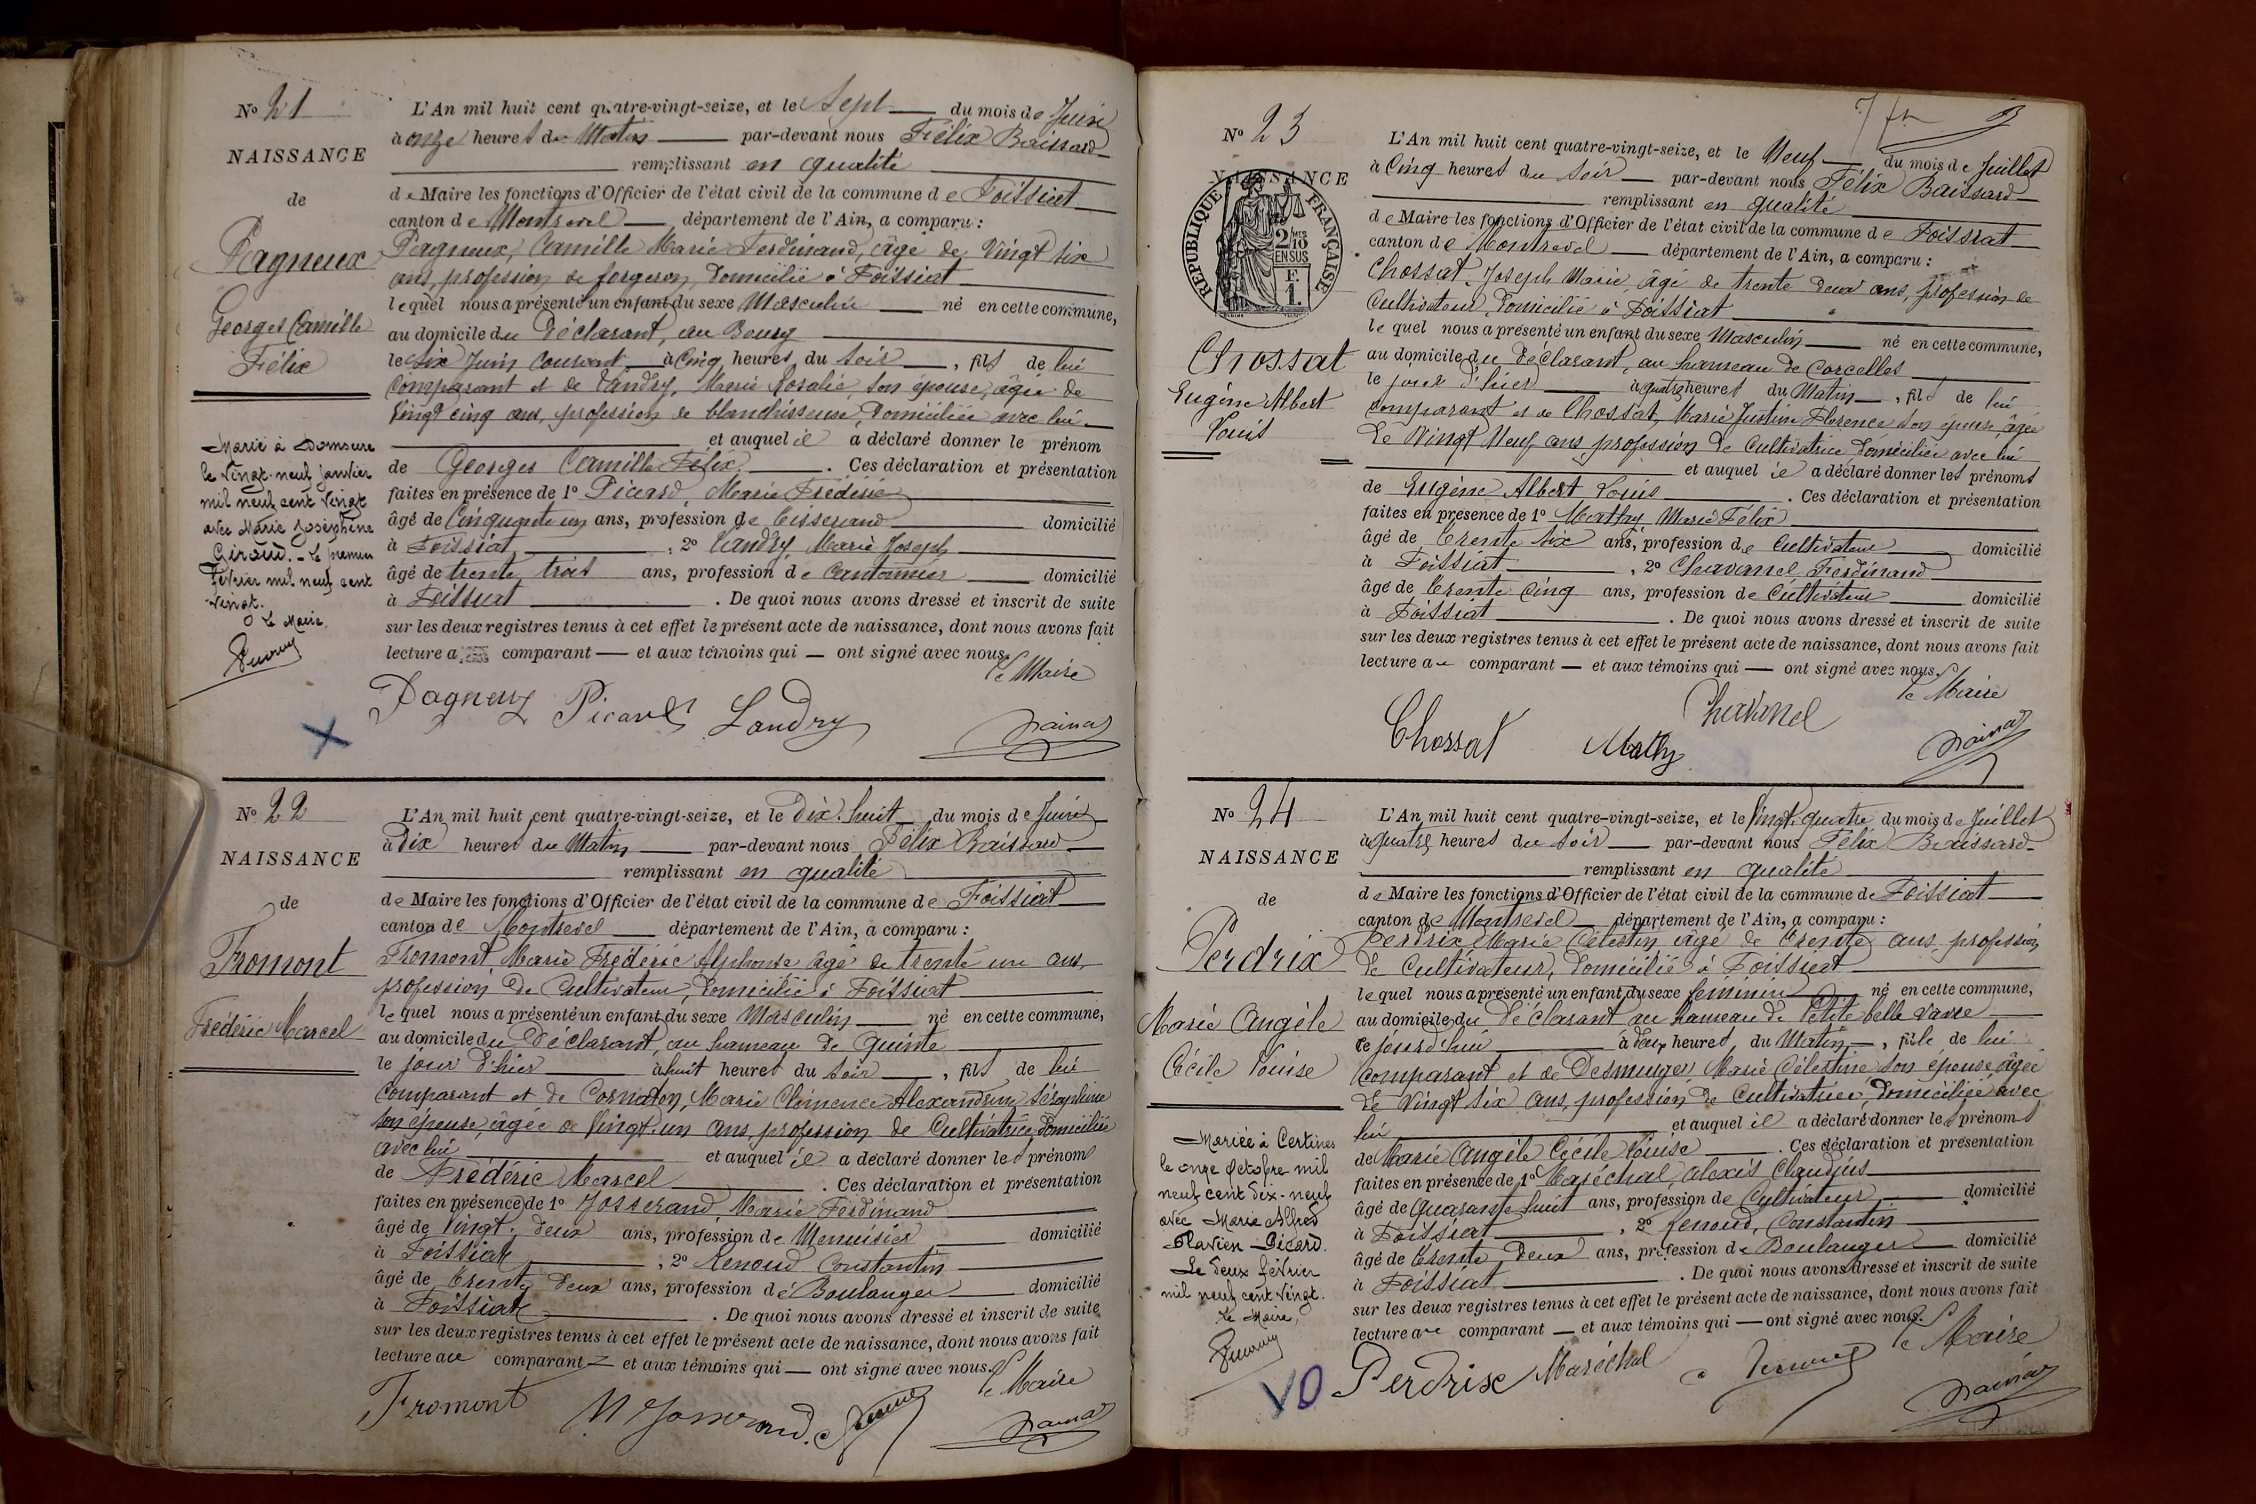 N° 21
NAISSANCE
de
Pagneux
Georges Camille
Félix
Marié à Domsure
le vingt-neuf janvier
mil neuf cent vingt
avec Marie Joséphine
Giroud. - Le premier
février mil neuf cent
vingt.
Le Maire,
L'An mil huit cent quatre-vingt-seize, et le Sept du mois de Juin
à onze heures du Matin par-devant nous Félix Baissard
remplissant en qualité
de Maire les fonctions d'Officier de l'état civil de la commune de Foissiat
canton de Montrevel département de l'Ain, a comparu :
Pagneux, Camille Marie Ferdinand, âgé de Vingt six
ans, profession de forgeron, domicilié à Foissiat
lequel nous a présenté un enfant du sexe Masculin né en cette commune,
au domicile du Déclarant, au Bourg
le six Juin courant à Cinq heures du soir, fils de lui
comparant et de Landry, Marie Rosalie, son épouse, âgée de
Vingt cinq ans, profession de blanchisseuse, domiciliée avec lui
et auquel il a déclaré donner le prénom
de Georges Camille Félix. Ces déclaration et présentation
faites en présence de 1° Picard, Marie Frédéric
âgé de Cinquante un ans, profession de Tisserand domicilié
à Foissiat, 2° Landry Marie Joseph
âgé de trente trois ans, profession de Cantonnier domicilié
à Foissiat. De quoi nous avons dressé et inscrit de suite
sur les deux registres tenus à cet effet le présent acte de naissance, dont nous avons fait
lecture au comparant et aux témoins qui ont signé avec nous.
Le Maire
Pagneux Picard Landry
N° 22
NAISSANCE
de
Fromont
Frédéric Marcel
L'An mil huit cent quatre-vingt-seize, et le Dix-huit du mois de Juin
à Dix heures du Matin par-devant nous Félix Baissard
remplissant en qualité
de Maire les fonctions d'Officier de l'état civil de la commune de Foissiat
canton de Montrevel département de l'Ain, a comparu :
Fromont Marie Frédéric Alphonse âgé de trente un ans,
profession de Cultivateur, domicilié à Foissiat
lequel nous a présenté un enfant du sexe Masculin né en cette commune,
au domicile du Déclarant, au hameau de Quinte
le jour d'hier à huit heures du soir, fils de lui
comparant et de Cornaton, Marie Clémence Alexandrine Séraphine
son épouse, âgée de Vingt un ans, profession de Cultivatrice, domiciliée
avec lui et auquel il a déclaré donner les prénoms
de Frédéric Marcel. Ces déclaration et présentation
faites en présence de 1° Josserand, Marie Ferdinand
âgé de Vingt-deux ans, profession de Menuisier domicilié
à Foissiat, 2° Renoud Constantin
âgé de trente deux ans, profession de Boulanger domicilié
à Foissiat. De quoi nous avons dressé et inscrit de suite
sur les deux registres tenus à cet effet le présent acte de naissance, dont nous avons fait
lecture au comparant et aux témoins qui ont signé avec nous.
Le Maire
Fromont M Josserand
N° 23
NAISSANCE
RÉPUBLIQUE FRANÇAISE
2/10mes
EN SUS
F.
1.
Chossat
Eugène Albert
Louis
L'An mil huit cent quatre-vingt-seize, et le Neuf du mois de Juillet
à Cinq heures du soir par-devant nous Félix Baissard
remplissant en qualité
de Maire les fonctions d'Officier de l'état civil de la commune de Foissiat
canton de Montrevel département de l'Ain, a comparu :
Chossat, Joseph Marie, âgé de trente deux ans, profession de
Cultivateur, domicilié à Foissiat
lequel nous a présenté un enfant du sexe Masculin né en cette commune,
au domicile du Déclarant, au hameau de Corcelles
le jour d'hier à quatre heures du Matin, fils de lui
comparant et de Chossat, Marie Justine Florence son épouse, âgée
de Vingt Neuf ans, profession de Cultivatrice domiciliée avec lui
et auquel il a déclaré donner les prénoms
de Eugène Albert Louis. Ces déclaration et présentation
faites en présence de 1° Mathy Marie Félix
âgé de trente six ans, profession de Cultivateur domicilié
à Foissiat, 2° Chavanel Ferdinand
âgé de trente Cinq ans, profession de Cultivateur domicilié
à Foissiat. De quoi nous avons dressé et inscrit de suite
sur les deux registres tenus à cet effet le présent acte de naissance, dont nous avons fait
lecture au comparant et aux témoins qui ont signé avec nous.
Le Maire
Chossat Mathy Chavanel
N° 24
NAISSANCE
de
Perdrix
Marie Angèle
Cécile Louise
Mariée à Certines
le onze octobre mil
neuf cent dix-neuf
avec Marie Alfred
Flavien Picard.
Le deux février
mil neuf cent vingt.
Le Maire,
L'An mil huit cent quatre-vingt-seize, et le Vingt-quatre du mois de Juillet
à quatre heures du soir par-devant nous Félix Baissard
remplissant en qualité
de Maire les fonctions d'Officier de l'état civil de la commune de Foissiat
canton de Montrevel département de l'Ain, a comparu :
Perdrix Marie Célestin âgé de trente ans profession
de Cultivateur, domicilié à Foissiat
lequel nous a présenté un enfant du sexe féminin né en cette commune,
au domicile du Déclarant au hameau de Petite belle vavre
ce jourd'hui à deux heures du Matin, fille de lui
comparant et de Desmurger Marie Célestine son épouse, âgée
de Vingt six ans, profession de Cultivatrice, domiciliée avec
lui et auquel il a déclaré donner les prénoms
de Marie Angèle Cécile Louise. Ces déclaration et présentation
faites en présence de 1° Maréchal, Alexis Claudius
âgé de Quarante huit ans, profession de Cultivateur domicilié
à Foissiat, 2° Renoud, Constantin
âgé de trente deux ans, profession de Boulanger domicilié
à Foissiat. De quoi nous avons dressé et inscrit de suite
sur les deux registres tenus à cet effet le présent acte de naissance, dont nous avons fait
lecture au comparant et aux témoins qui ont signé avec nous.
Le Maire
Perdrix Maréchal